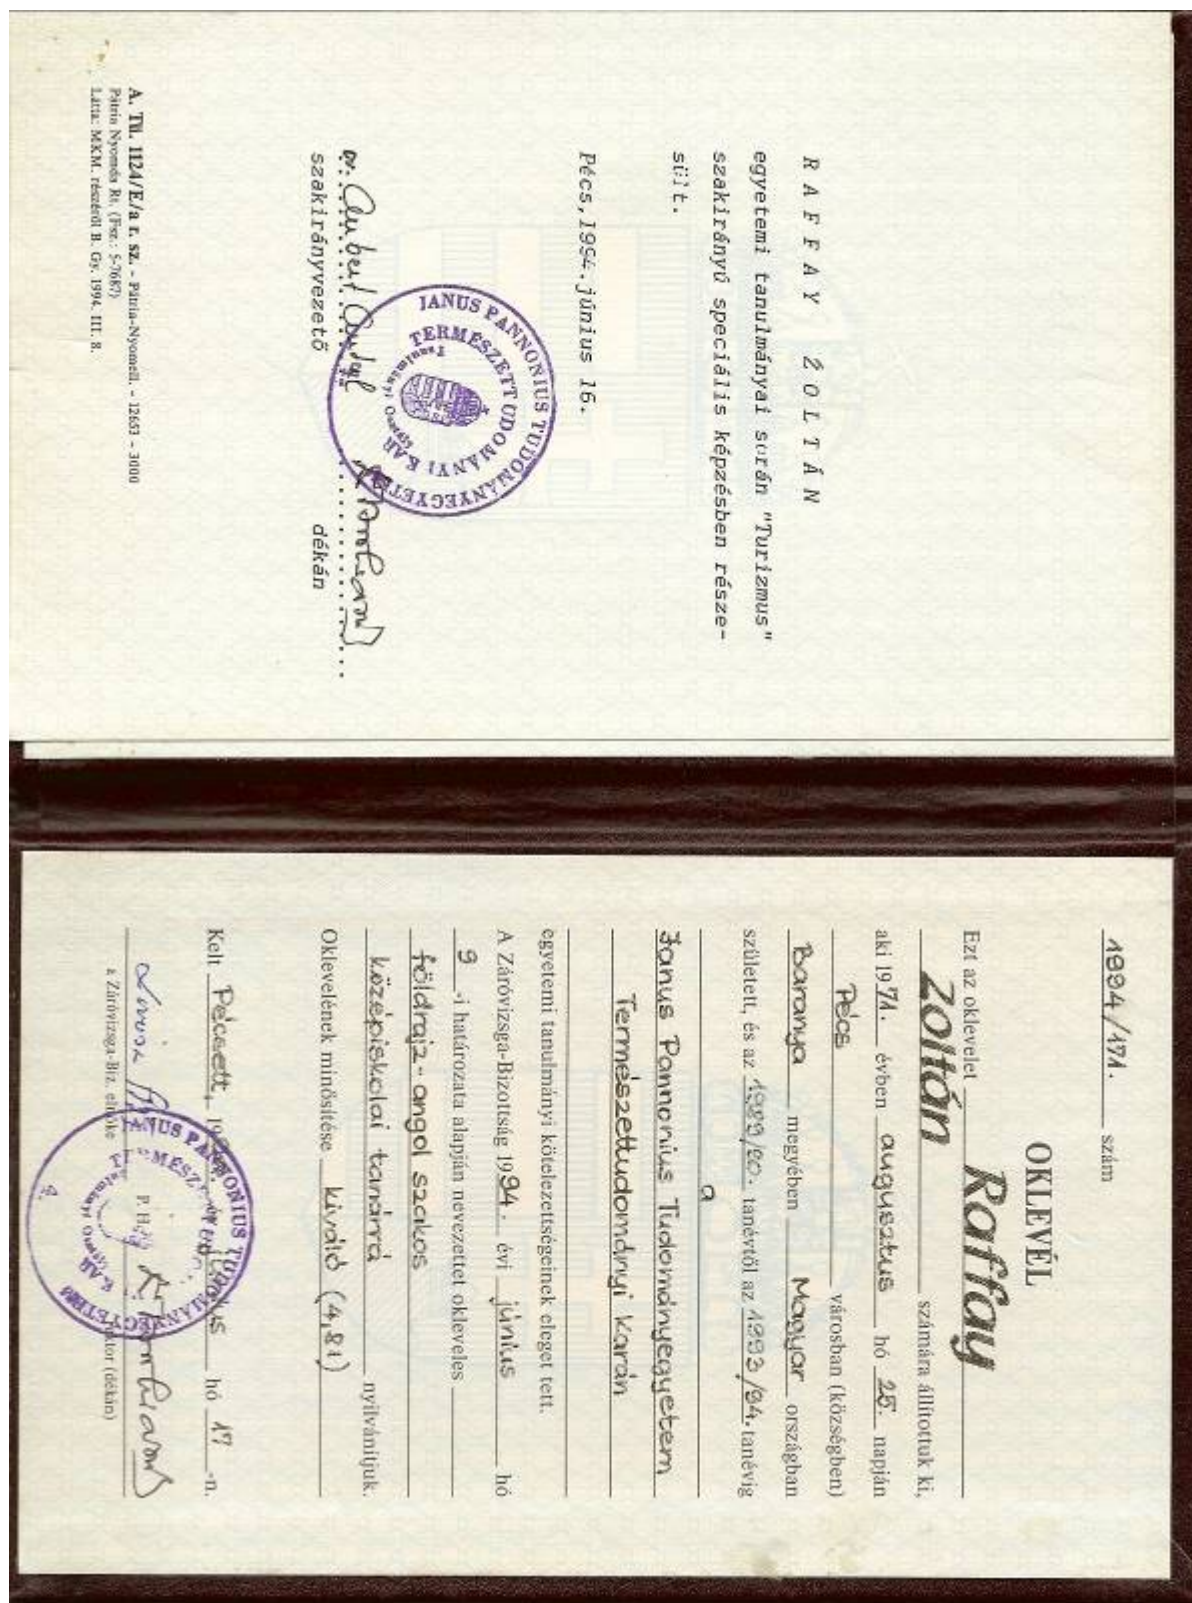 RAFFAY ZOLTÁN
egyetemi tanulmányai során "Turizmus"
szakirányú speciális képzésben része-
sült.
Pécs, 1994. június 16.
dr. Aubert Antal
szakirányvezető
dékán
JANUS PANNONIUS TUDOMÁNYEGYETEM
TERMÉSZETTUDOMÁNYI KAR
Tanulmányi Osztály
A. Tü. 1124/E/a r. sz. - Pátria-Nyomell. - 12653 - 3000
Pátria Nyomda Rt. (Fsz.: 5-7687)
Látta: MKM. részéről B. Gy. 1994. III. 8.
1994/171. szám
OKLEVÉL
Ezt az oklevelet Raffay
Zoltán számára állítottuk ki,
aki 1971. évben augusztus hó 25. napján
Pécs városban (községben)
Baranya megyében Magyar országban
született, és az 1989/90. tanévtől az 1993/94. tanévig
a
Janus Pannonius Tudományegyetem
Természettudományi Karán
egyetemi tanulmányi kötelezettségeinek eleget tett.
A Záróvizsga-Bizottság 1994. évi június hó
9 -i határozata alapján nevezettet okleveles
földrajz-angol szakos
középiskolai tanárrá nyilvánítjuk.
Oklevelének minősítése kiváló (4,81)
Kelt Pécsett, június hó 17 -n.
a Záróvizsga-Biz. elnöke
P. H.
rektor (dékán)
JANUS PANNONIUS TUDOMÁNYEGYETEM